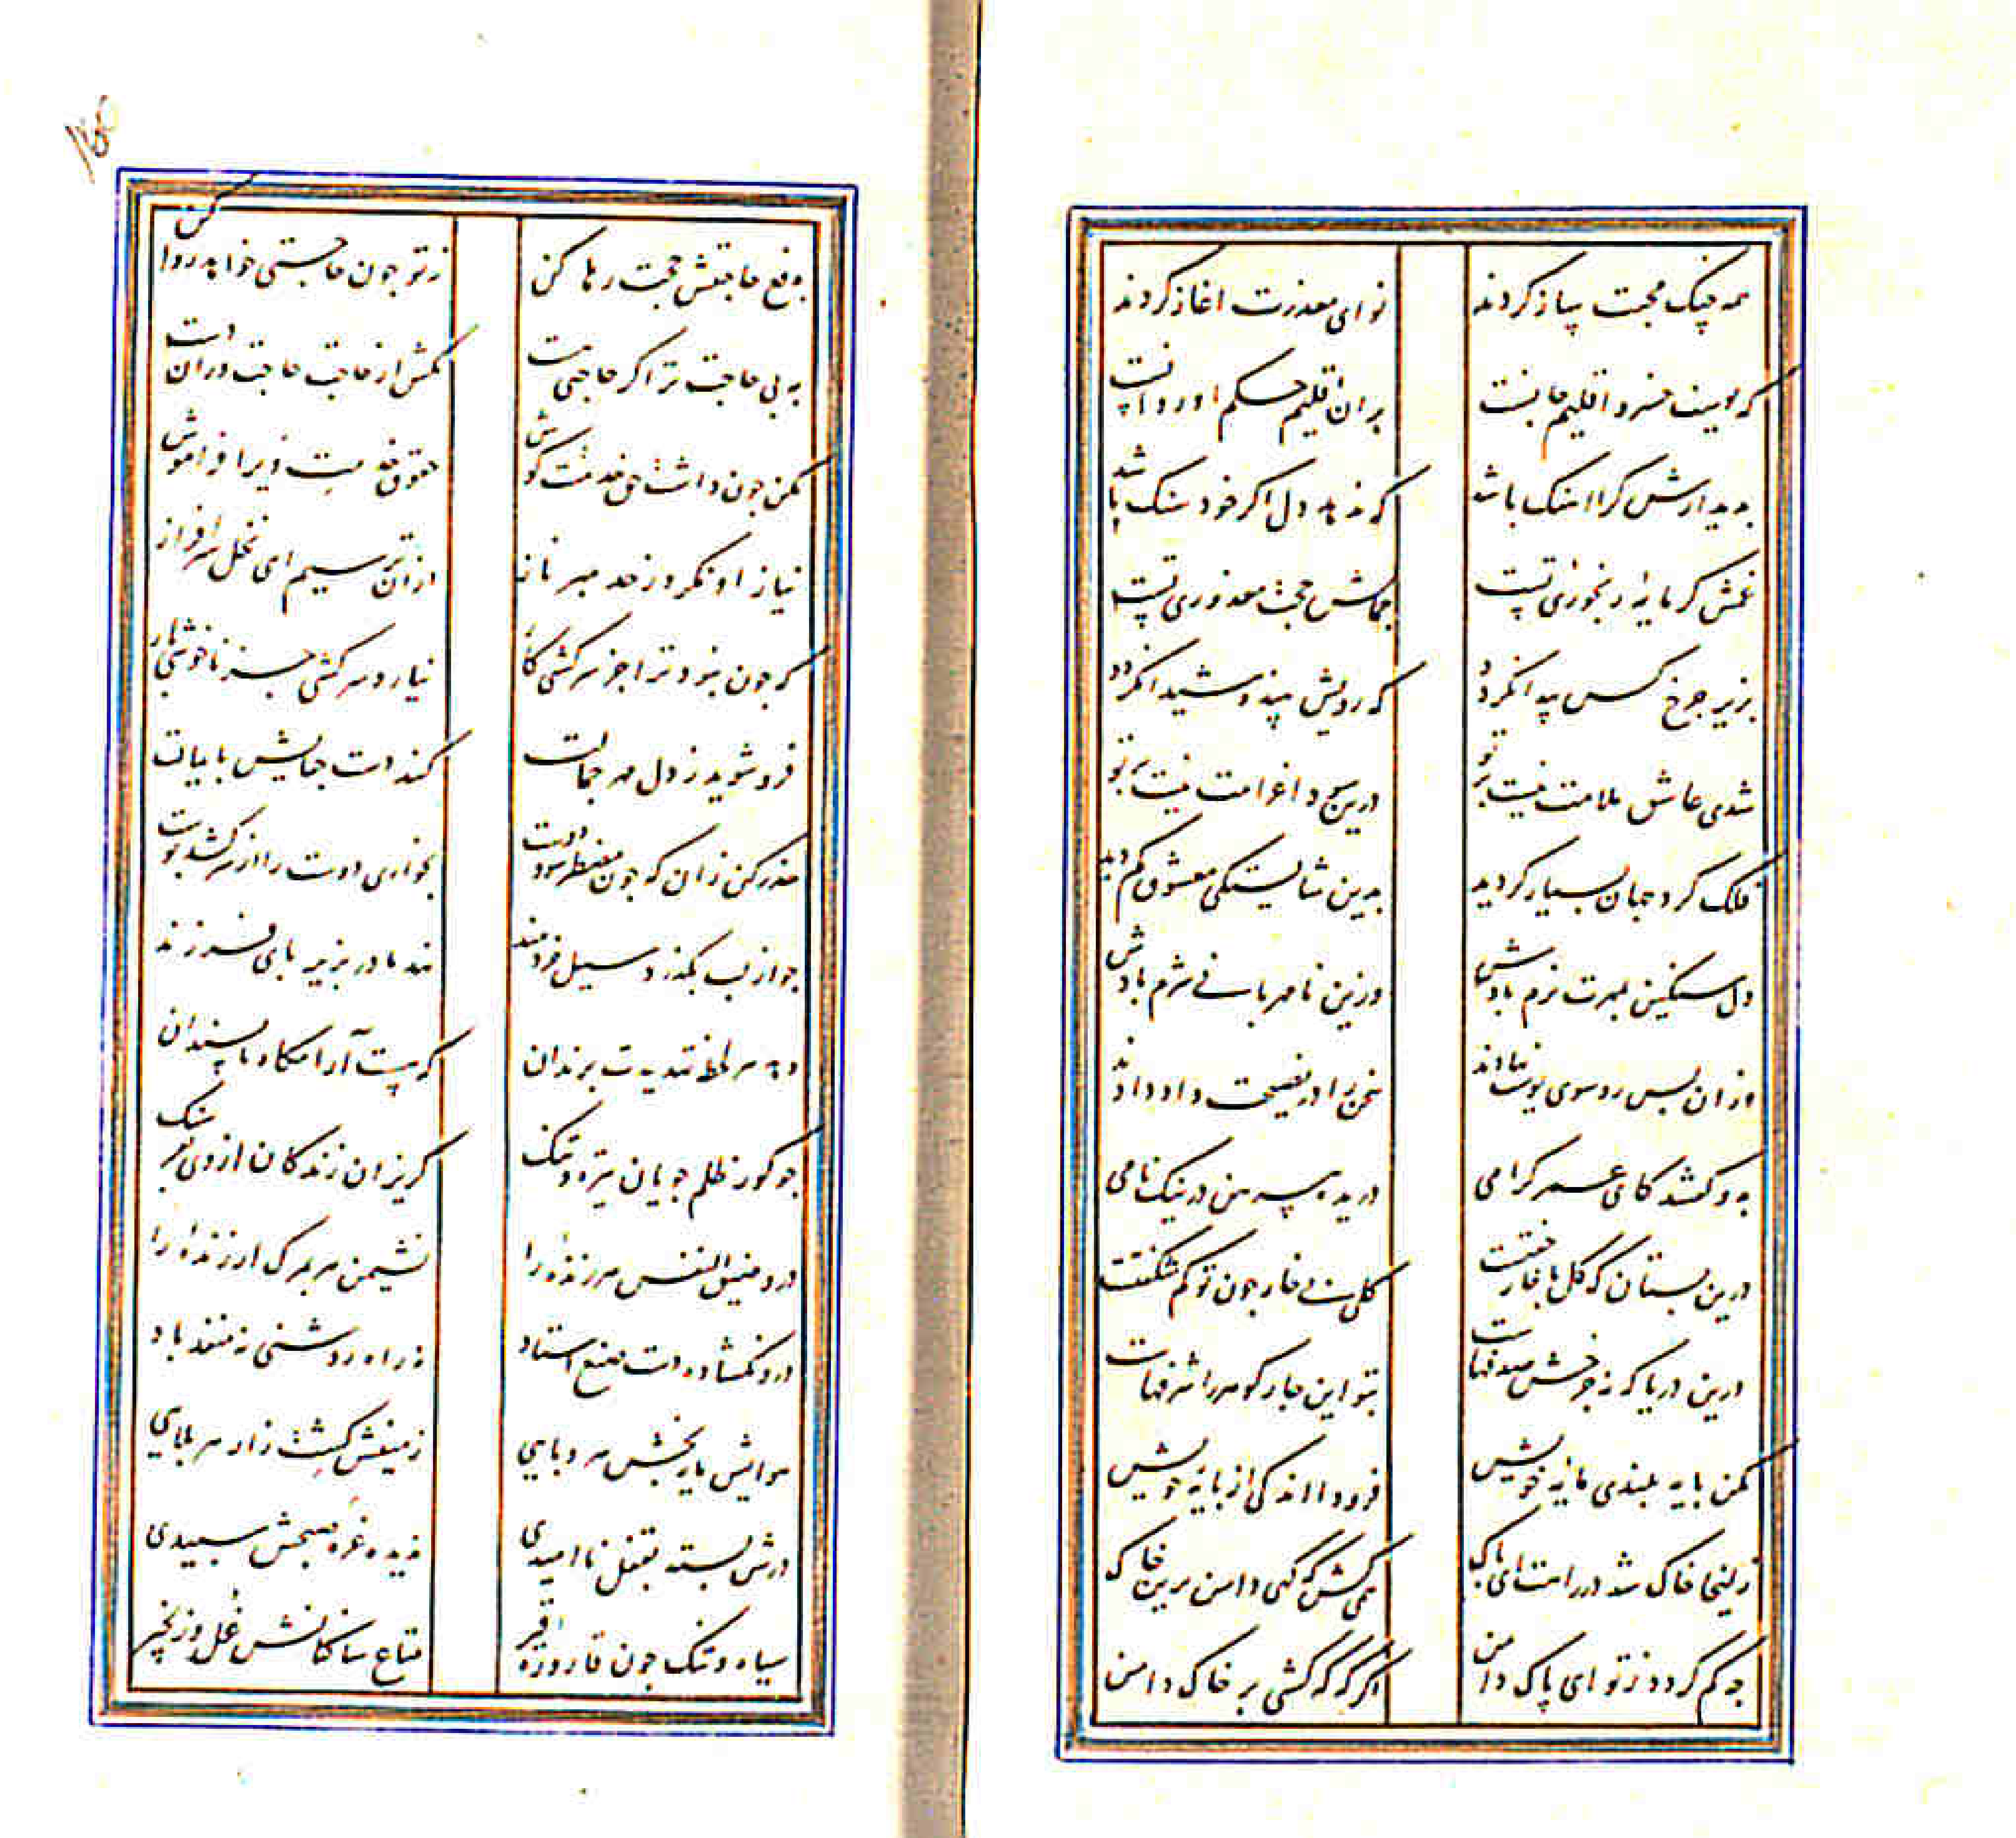 همه چنک محبت ساز کردند نوای معذرت اغاز کردند
که یوسف خسرو اقلیم جانست بران اقلیم حکم او روانست
بدیدارش کرا اهنک باشد که ندهد دل اکر خود سنک باشد
غمش کر مایه رنجوری تست جمالش حجت معذوری تست
بزیر چرخ کس پیدا نکردد که رویش بیند و شیدا نکردد
شدی عاشق ملامت نیست بر تو درین سودا غرامت نیست بر تو
فلک کرد جهان بسیار کردید بدین شایستکی معشوق کم دید
دل سنکین بمهرت نرم بادش وزین نامهربانی شرم بادش
وزان پس رو سوی یوسف نهادند سخن را در نصیحت داد دادند
بدو کفتند کای عمر کرامی دریده پیرهن در نیک نامی
درین بستان که کل با خار جفتست کلی بی خار چون تو کم شکفتست
درین دریا که نه چرخش صدفهاست بتو این چار کوهر را شرفهاست
مکن پایه بلندی مایه خویش فرود آ اندکی از پایه خویش
زلیخا خاک شد در راهت ای پاک همی کش که کهی دامن برین خاک
چه کم کردد ز تو ای پاک دامن اکر که که کشی بر خاک دامن
بدفع حاجتش حجت رها کن ز تو چون حاجتی خواهد روا کن
به بی حاجت ترا کر حاجتی هست مکش از حاجت حاجت وران دست
مکن چون داشت حق خدمتت کوش حقوق خدمت ویرا فراموش
نیاز او نکر وز حد مبر ناز ازان ترسیم ای نخل سرافراز
که چون نبود ترا جز سرکشی کار نیارد سرکشی جز ناخوشی بار
فرو شوید ز دل مهر جمالت کند دست جفایش پایمالت
حذر کن زان که چون مضطر شود دوست بخواری دوست را از سر کشد پوست
چو از لب بکذرد سیل خردمند نهد مادر بزیر پای فرزند
دهد هر لحظه تهدیدت بزندان که هست آرامکاه ناپسندان
چو کور ظلم جویان تیره و تنک کریزان زندکان از وی بفرسنک
درو ضیق النفس هر زنده را نشیمن هر بمرک ارزنده را
درو نکشاده دست صنع استاد نه راه روشنی نه منفذ باد
هوایش مایه بخش هر وبایی زمینش کشت زار هر بلایی
درش بسته بقفل ناامیدی ندیده غره صبحش سپیدی
سیاه و تنک چون قاروره قیر متاع ساکنانش غل و زنجیر